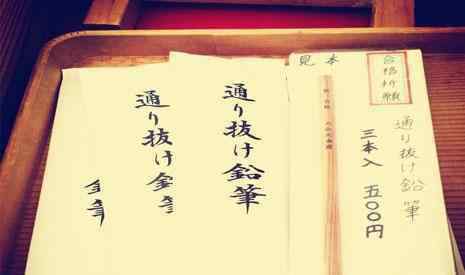 合格祈願
見本
通り抜け鉛筆
三本入 五〇〇円
通り抜け鉛筆
通り抜け